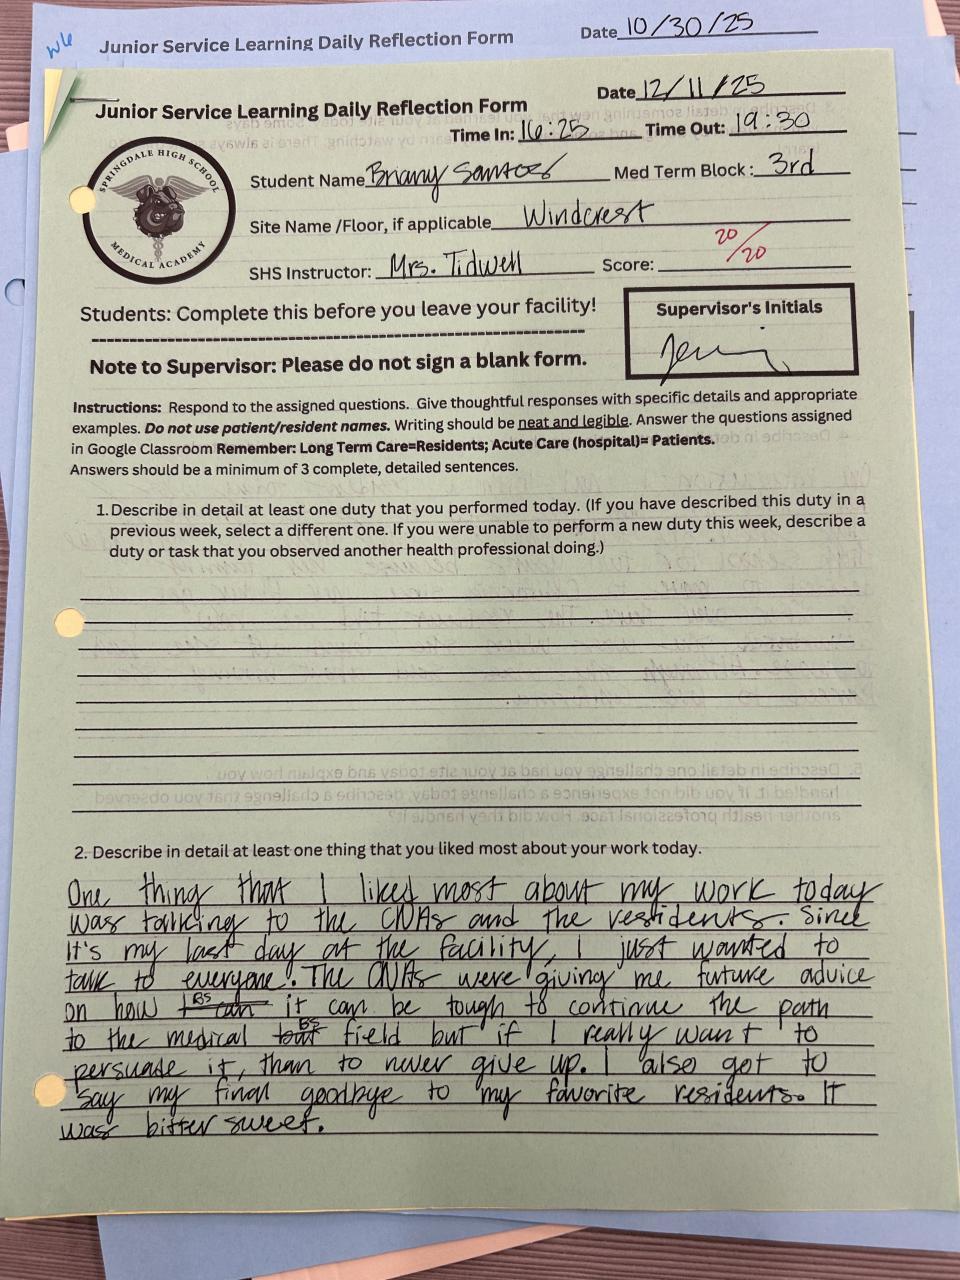 W6
Junior Service Learning Daily Reflection Form
Date 10/30/25
Junior Service Learning Daily Reflection Form
Date 12/11/25
Time In: 16:25 Time Out: 19:30
SPRINGDALE HIGH SCHOOL
MEDICAL ACADEMY
Student Name Briany Santos Med Term Block: 3rd
Site Name /Floor, if applicable Windcrest
SHS Instructor: Mrs. Tidwell Score: 20/20
Students: Complete this before you leave your facility!
Supervisor's Initials
Note to Supervisor: Please do not sign a blank form.
Instructions: Respond to the assigned questions. Give thoughtful responses with specific details and appropriate
examples. Do not use patient/resident names. Writing should be neat and legible. Answer the questions assigned
in Google Classroom Remember: Long Term Care=Residents; Acute Care (hospital)= Patients.
Answers should be a minimum of 3 complete, detailed sentences.
1. Describe in detail at least one duty that you performed today. (If you have described this duty in a
previous week, select a different one. If you were unable to perform a new duty this week, describe a
duty or task that you observed another health professional doing.)
2. Describe in detail at least one thing that you liked most about your work today.
One thing that I liked most about my work today
was talking to the CNAs and the residents. Since
it's my last day at the facility, I just wanted to
talk to everyone. The CNAs were giving me future advice
on how BS it can be tough to continue the path
to the medical BS field but if I really want to
persuade it, than to never give up. I also got to
say my final goodbye to my favorite residents. It
was bitter sweet.